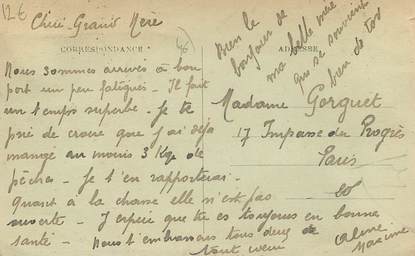 12 €
Chère Grand Mère
CORRESPONDANCE
Nous sommes arrivés à bon
port un peu fatigués - Il fait
un temps superbe - Je te
prie de croire que j'ai déjà
mangé au moins 3 Kgs de
pêches - Je t'en rapporterai -
Quant à la chasse elle n'est pas
ouverte - J'espère que tu es toujours en bonne
santé - Nous t'embrassons tous deux de
tout cœur
Aline
Maxime
Bien le
bonjour de
ma belle mère
qui se souvient
bien de toi
ADRESSE
Madame Gorguet
17 Impasse du Progrès
Paris